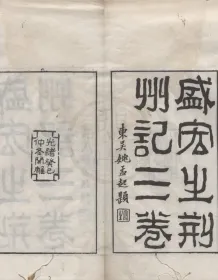 盛宏之荊
州記三卷
東吳姚孟起題
光緒癸巳
仲冬開雕